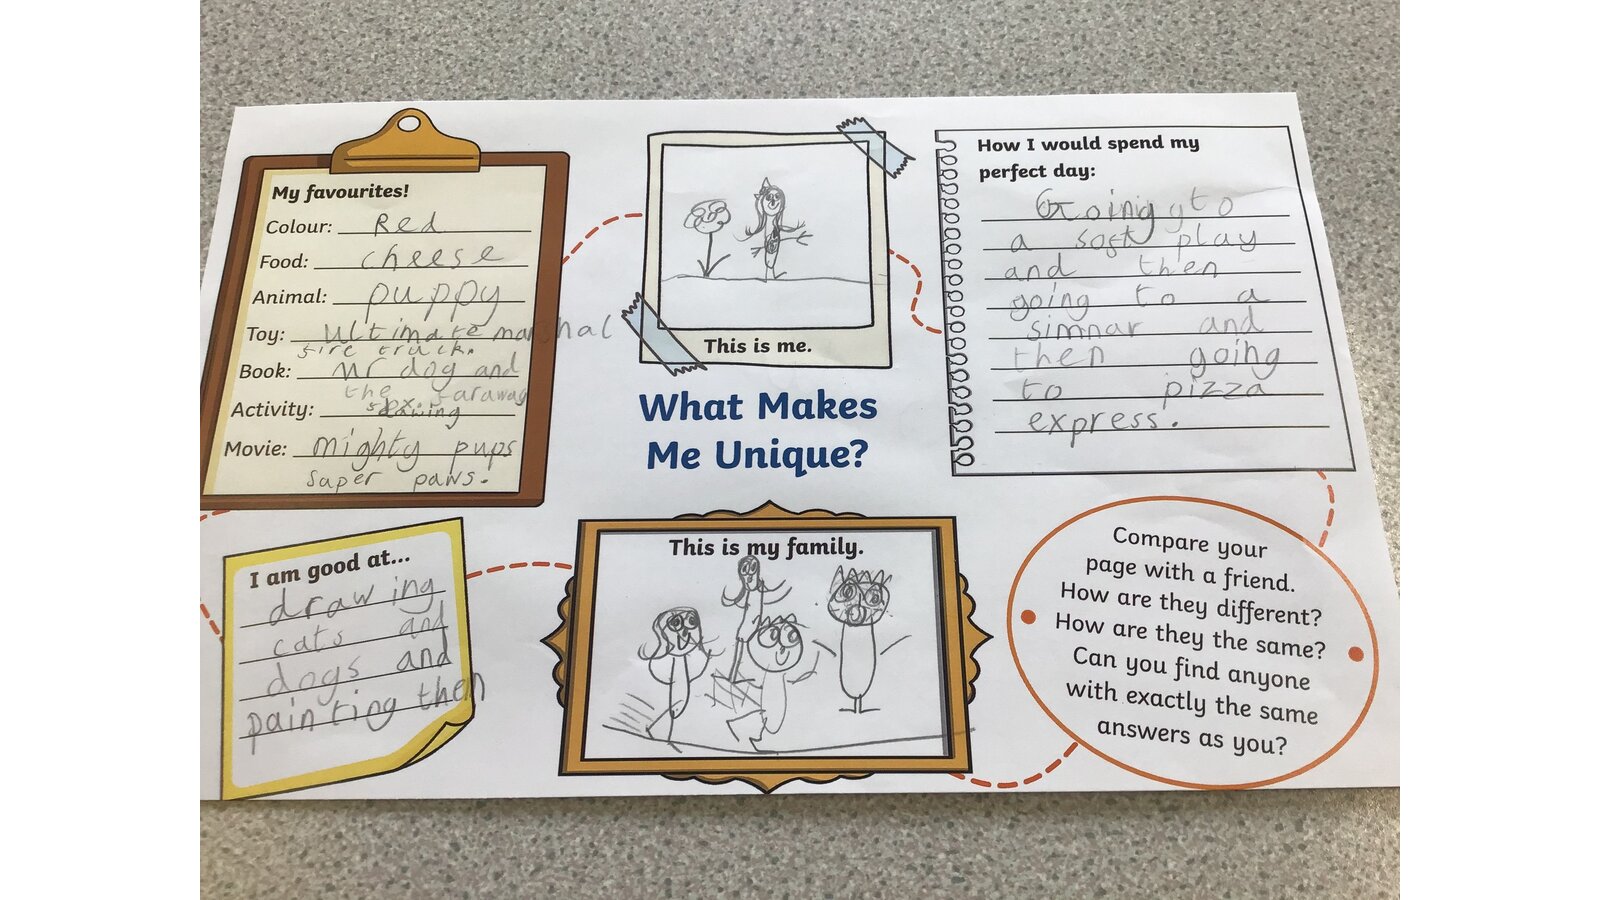 My favourites!
Colour: Red
Food: cheese
Animal: puppy
Toy: ultimate marshal
fire truck.
Book: Mr dog and
the faraway
Activity:
Movie: mighty pups
super paws.
This is me.
How I would spend my
perfect day:
Going to
a soft play
and then
going to a
simnar and
then going
to pizza
express.
What Makes
Me Unique?
I am good at...
drawing
cats and
dogs and
painting then
This is my family.
Compare your
page with a friend.
How are they different?
How are they the same?
Can you find anyone
with exactly the same
answers as you?